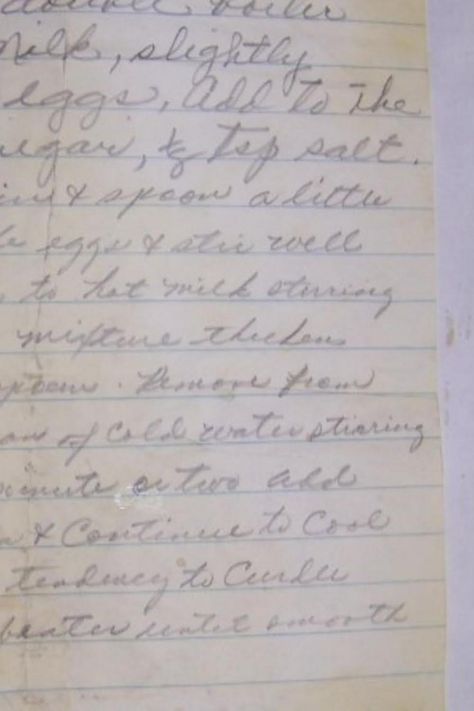 double boiler
milk, slightly
eggs, add to the
sugar, ½ tsp salt.
& spoon a little
eggs & stir well
to hot milk stirring
mixture thickens
spoon. Remove from
of cold water stirring
minute or two add
& Continue to Cool
tendency to Curdle
beater until smooth